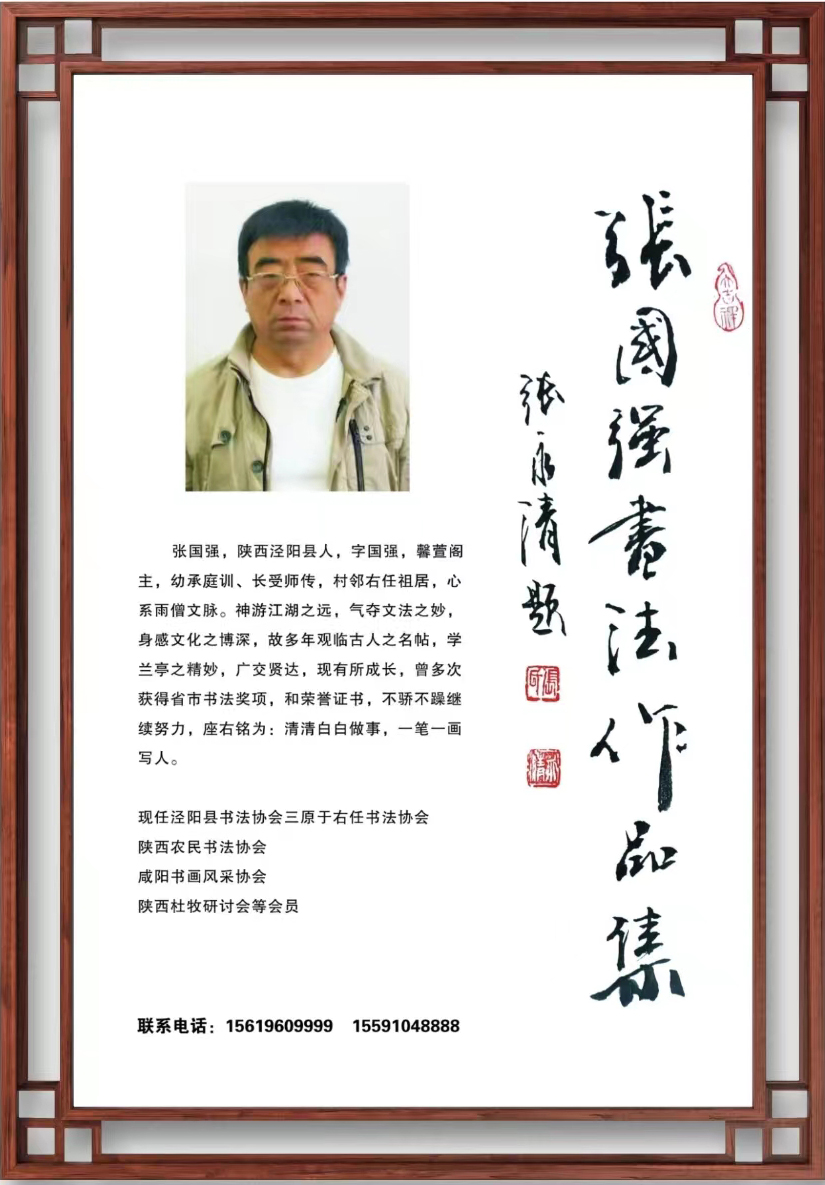 張國强書法作品集
张永清题
张国强，陕西泾阳县人，字国强，馨萱阁
主，幼承庭训、长受师传，村邻右任祖居，心
系雨僧文脉。神游江湖之远，气夺文法之妙，
身感文化之博深，故多年观临古人之名帖，学
兰亭之精妙，广交贤达，现有所成长，曾多次
获得省市书法奖项，和荣誉证书，不骄不躁继
续努力，座右铭为：清清白白做事，一笔一画
写人。
现任泾阳县书法协会三原于右任书法协会
陕西农民书法协会
咸阳书画风采协会
陕西杜牧研讨会等会员
联系电话：15619609999 15591048888